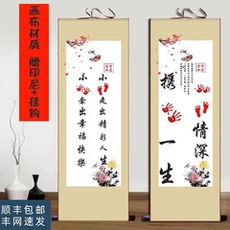 画布材质
赠印尼+挂钩
小走出精彩人生
小牵出幸福快樂
情深
携一生
顺丰包邮
丰网速发